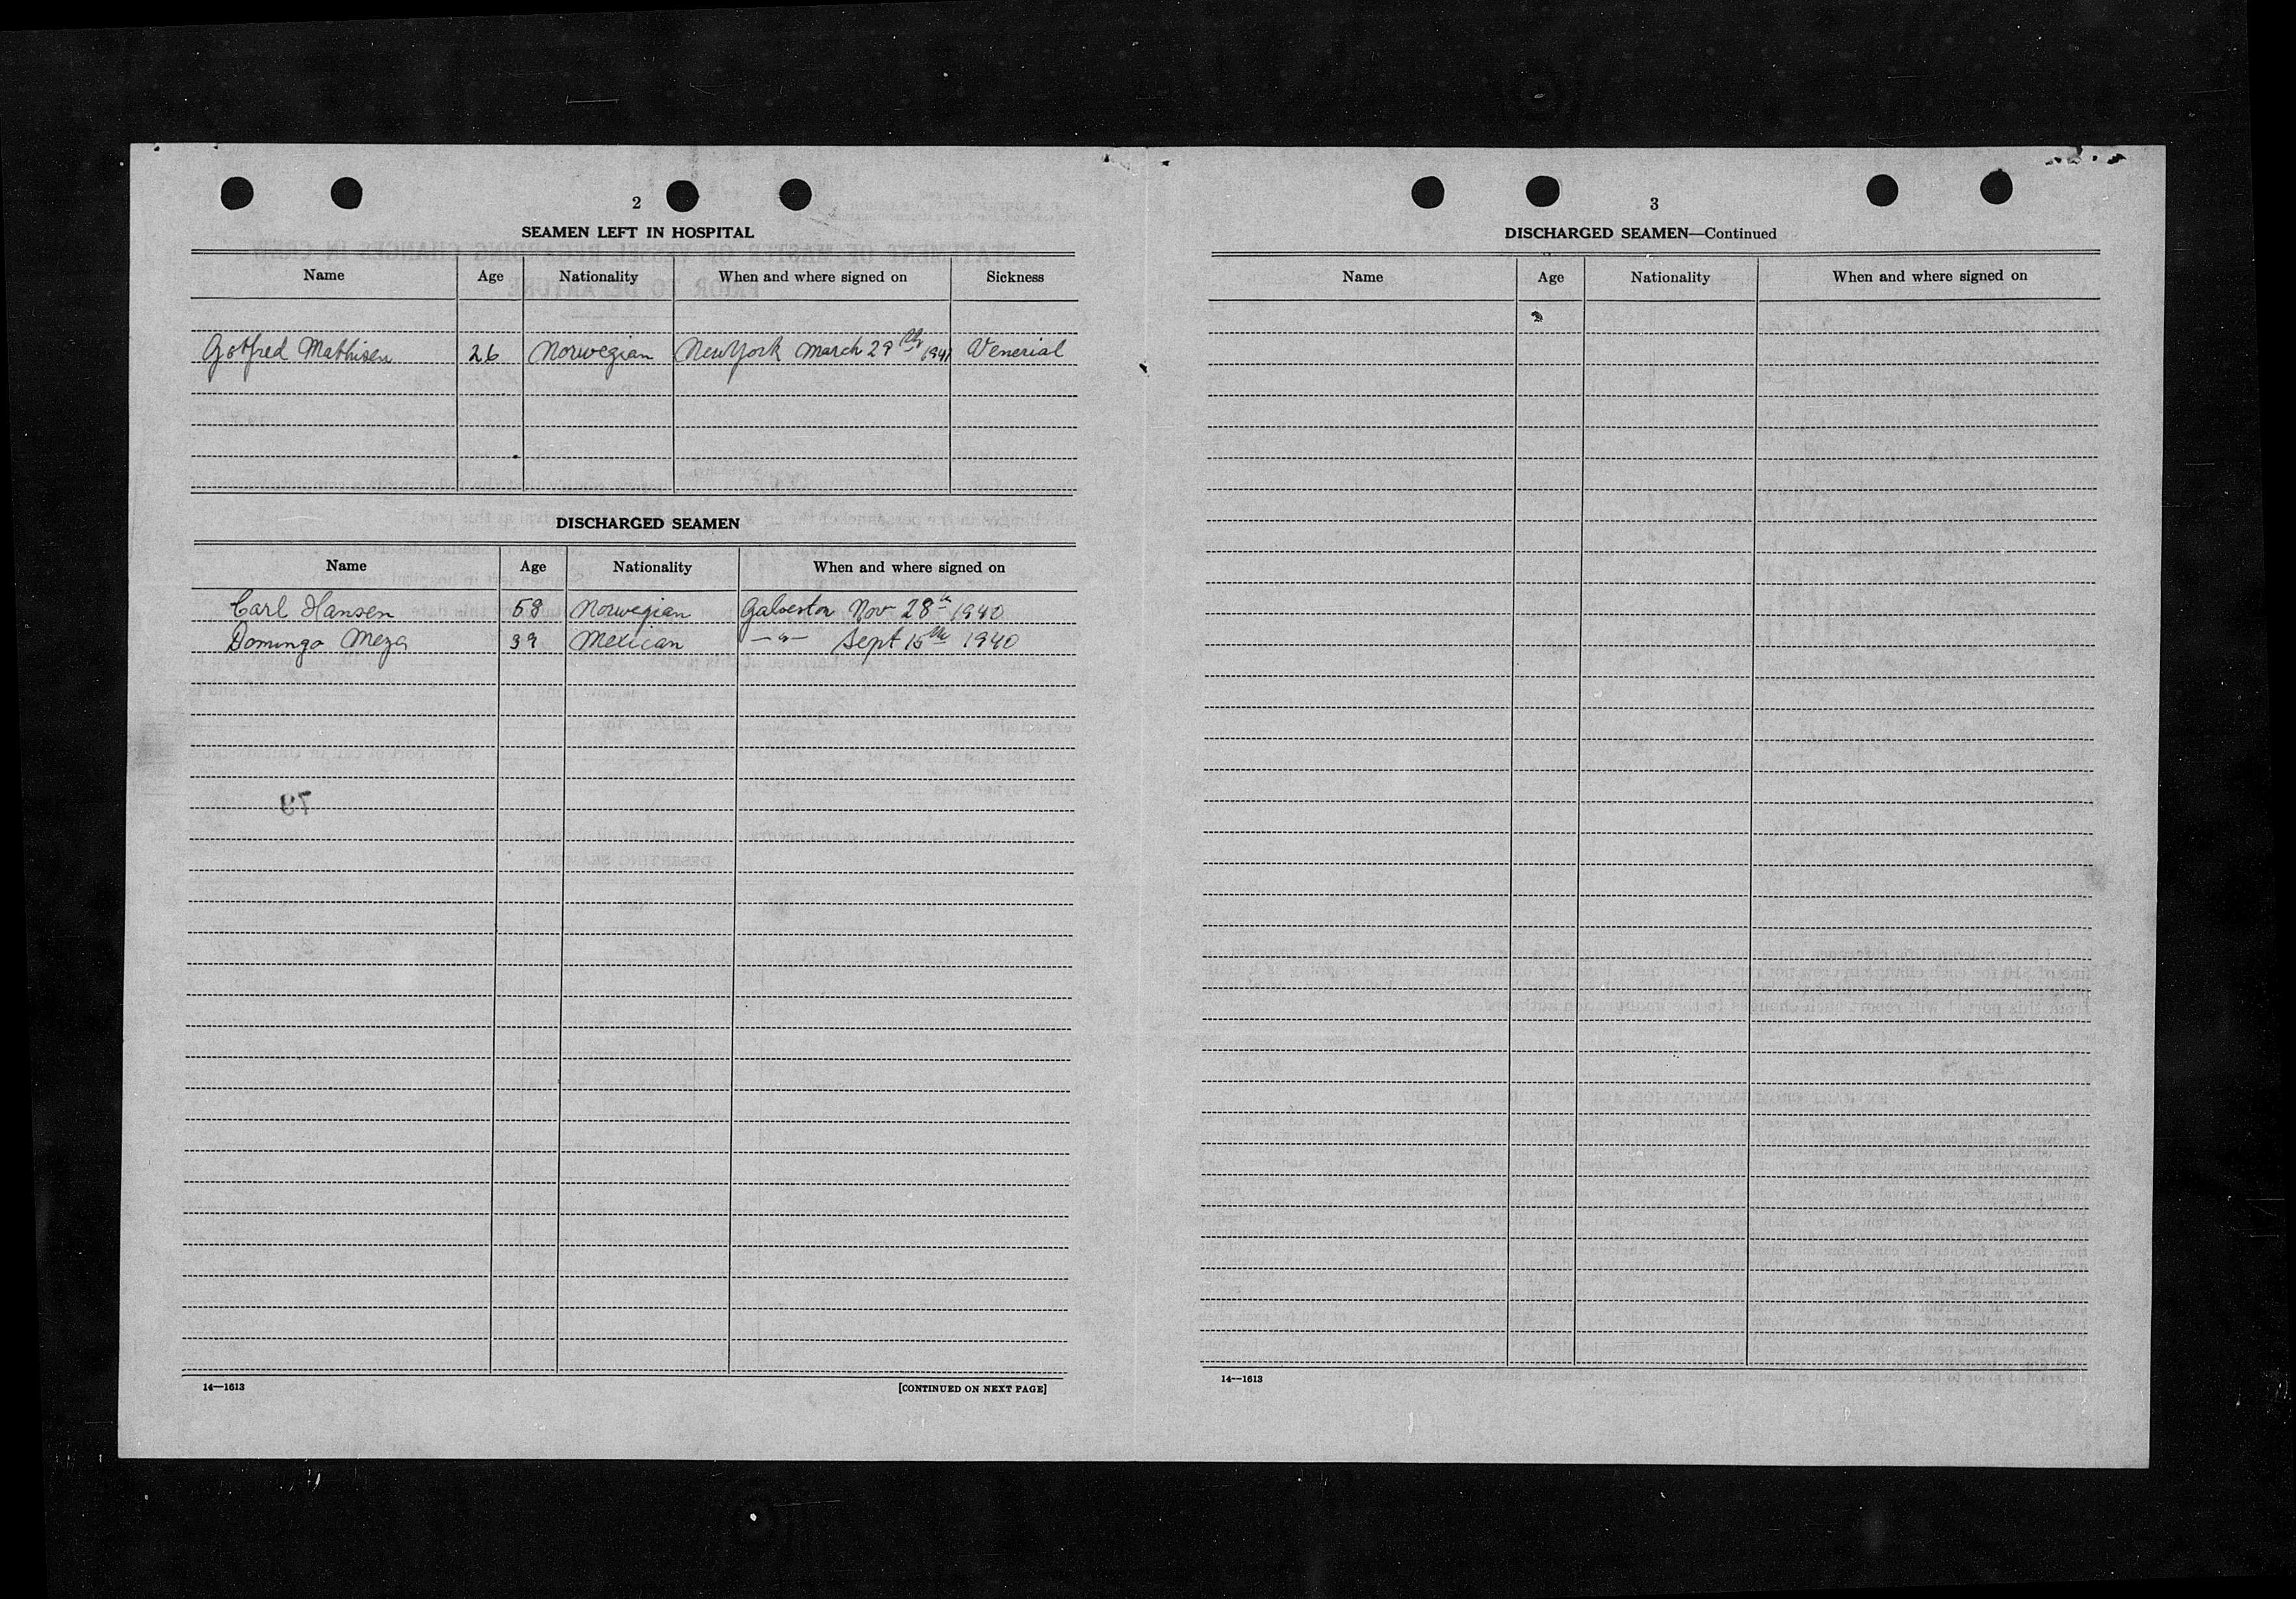 2
SEAMEN LEFT IN HOSPITAL
Name Age Nationality When and where signed on Sickness
Gotfred Mathisen 26 Norwegian New York March 29th 1941 Venerial
DISCHARGED SEAMEN
Name Age Nationality When and where signed on
Carl Hansen 58 Norwegian Galveston Nov 28th 1940
Domingo Meza 39 Mexican —"— Sept 15th 1940
14—1613 [CONTINUED ON NEXT PAGE]
3
DISCHARGED SEAMEN—Continued
Name Age Nationality When and where signed on
14—1613